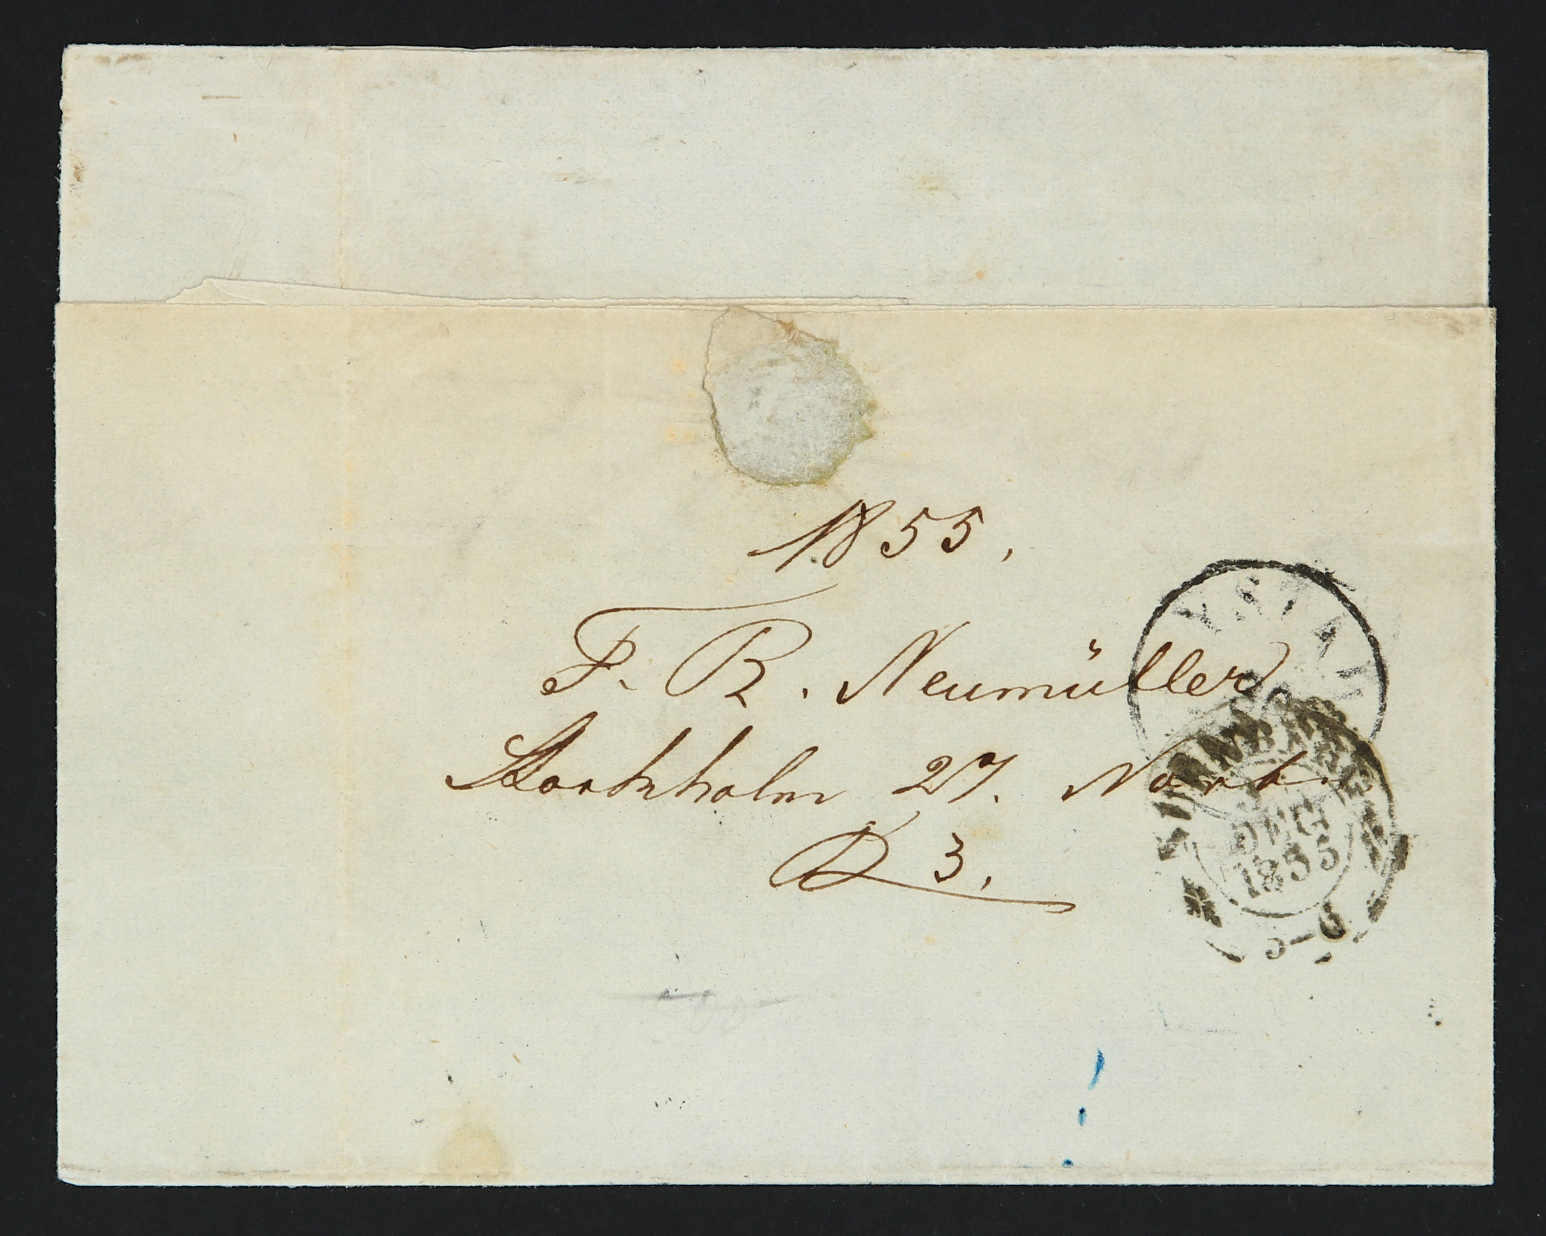 1855,
F. R. Neumüller
Stockholm 27. Novbr
D 3,
YSTAD
DEC
1855
5-6